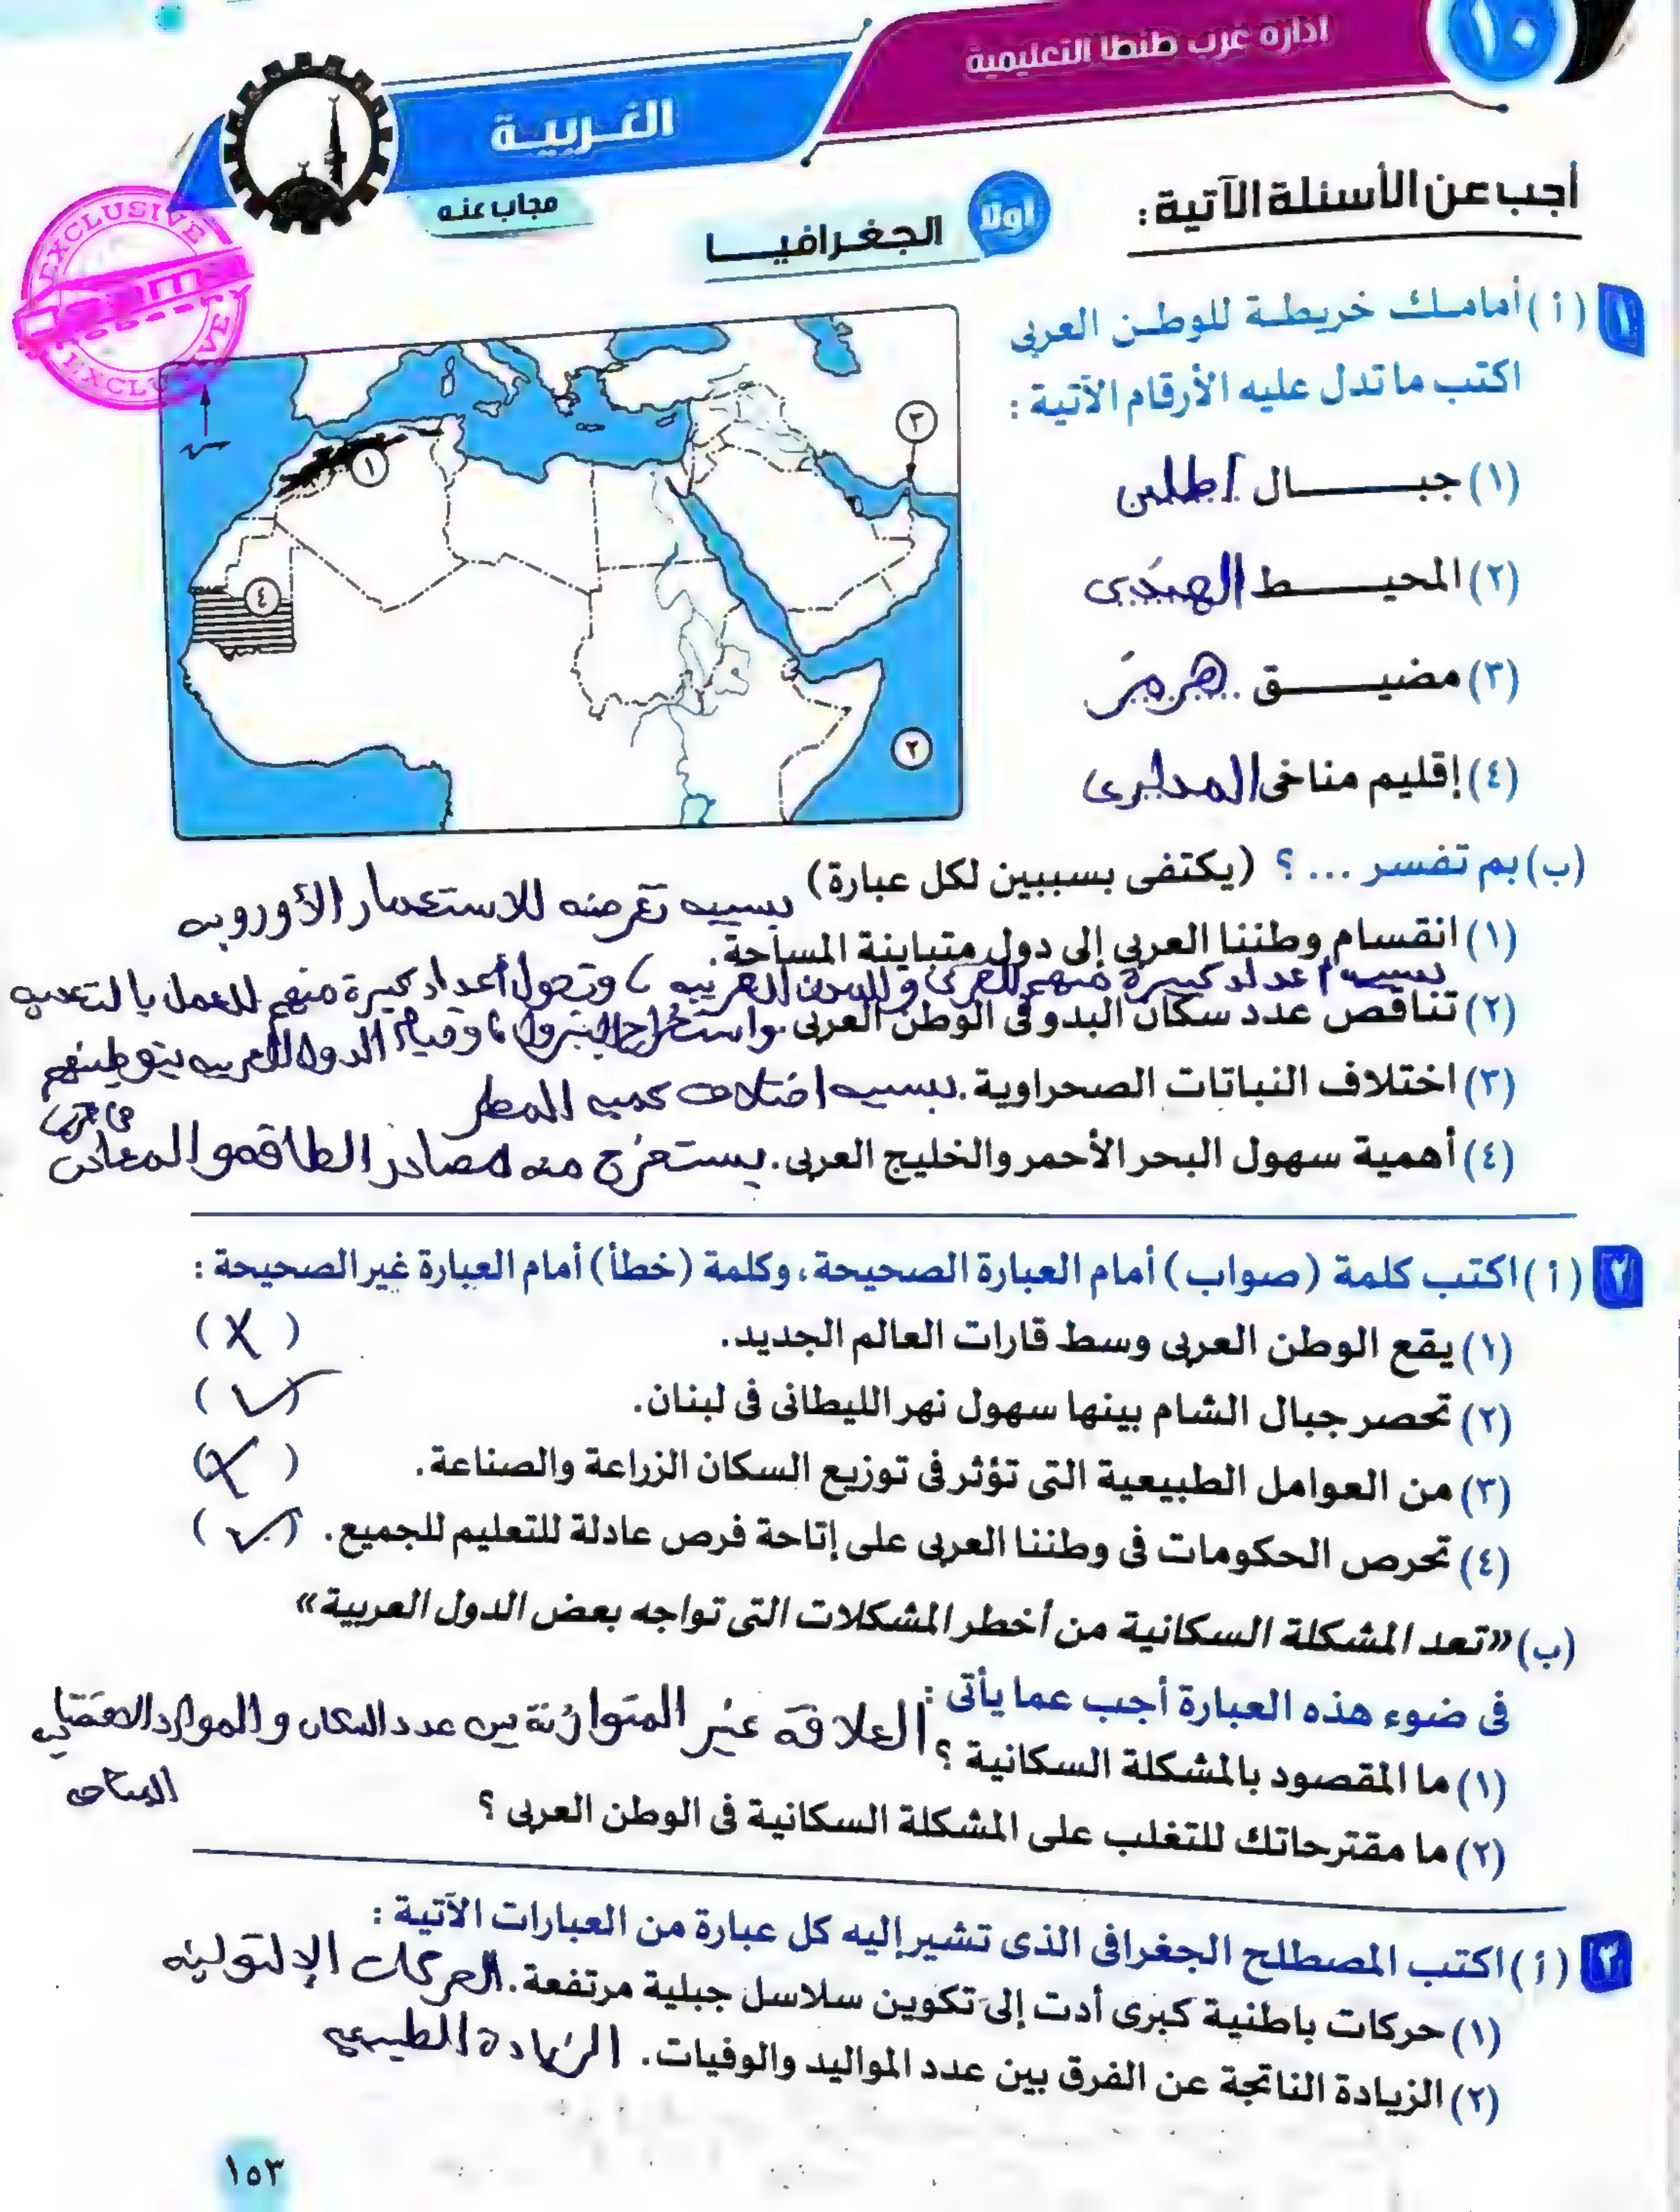 ١٠
ادارة غرب طنطا التعليمية
الغربية
مجاب عنه
أجب عن الأسئلة الآتية :
أولا الجغرافيا
EXCLUSIVE
EXCLUSIVE
١ ( أ ) أمامك خريطة للوطن العربى
اكتب ما تدل عليه الأرقام الآتية :
(١) جبال اطلس
(٢) المحيط الهندى
(٣) مضيق هرمز
(٤) إقليم مناخى المدارى
١
٢
٣
٤
(ب) بم تفسر ... ؟ (يكتفى بسببين لكل عبارة)
(١) انقسام وطننا العربى إلى دول متباينة المساحة. بسبب تعرضه للاستعمار الأوروبى
بسبب اعداد كبيرة منهم للقرى والمدن القريبه ، وتحول أعداد كبيرة منهم للعمل بالتعدين
(٢) تناقص عدد سكان البدو فى الوطن العربى. واستخراج البترول ، وقيام الدول العربيه بتوطينهم
فى قرى
(٣) اختلاف النباتات الصحراوية. بسبب اختلاف كميه المطر
(٤) أهمية سهول البحر الأحمر والخليج العربى. يستخرج منه مصادر الطاقه والمعادن
٢ ( أ ) اكتب كلمة (صواب) أمام العبارة الصحيحة، وكلمة (خطأ) أمام العبارة غير الصحيحة :
(١) يقع الوطن العربى وسط قارات العالم الجديد. ( X )
(٢) تحصر جبال الشام بينها سهول نهر الليطانى فى لبنان. ( ✓ )
(٣) من العوامل الطبيعية التى تؤثر فى توزيع السكان الزراعة والصناعة. ( X )
(٤) تحرص الحكومات فى وطننا العربى على إتاحة فرص عادلة للتعليم للجميع. ( ✓ )
(ب) «تعد المشكلة السكانية من أخطر المشكلات التى تواجه بعض الدول العربية»
فى ضوء هذه العبارة أجب عما يأتى :
(١) ما المقصود بالمشكلة السكانية ؟ العلاقة غير المتوازنة بين عدد السكان والموارد الاقتصاديه
المتاحه
(٢) ما مقترحاتك للتغلب على المشكلة السكانية فى الوطن العربى ؟
٣ ( أ ) اكتب المصطلح الجغرافى الذى تشير إليه كل عبارة من العبارات الآتية :
(١) حركات باطنية كبرى أدت إلى تكوين سلاسل جبلية مرتفعة. الحركات الإلتوائيه
(٢) الزيادة الناتجة عن الفرق بين عدد المواليد والوفيات. الزيادة الطبيعيه
١٥٣